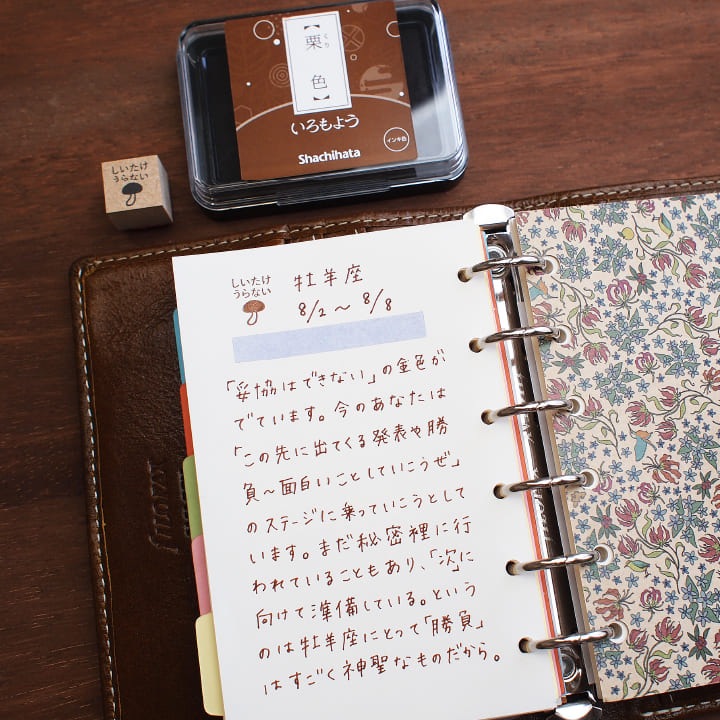 【栗色】
くり
いろもよう
インキ色
Shachihata
しいたけ
うらない
しいたけ
うらない
牡羊座
8/2〜8/8
「妥協はできない」の金色が
でています。今のあなたは
「この先に出てくる発表や勝
負〜面白いことしていこうぜ」
のステージに乗っていこうとして
います。まだ秘密裡に行
われていることもあり、「次」に
向けて準備している。という
のは牡羊座にとって「勝負」
はすごく神聖なものだから。